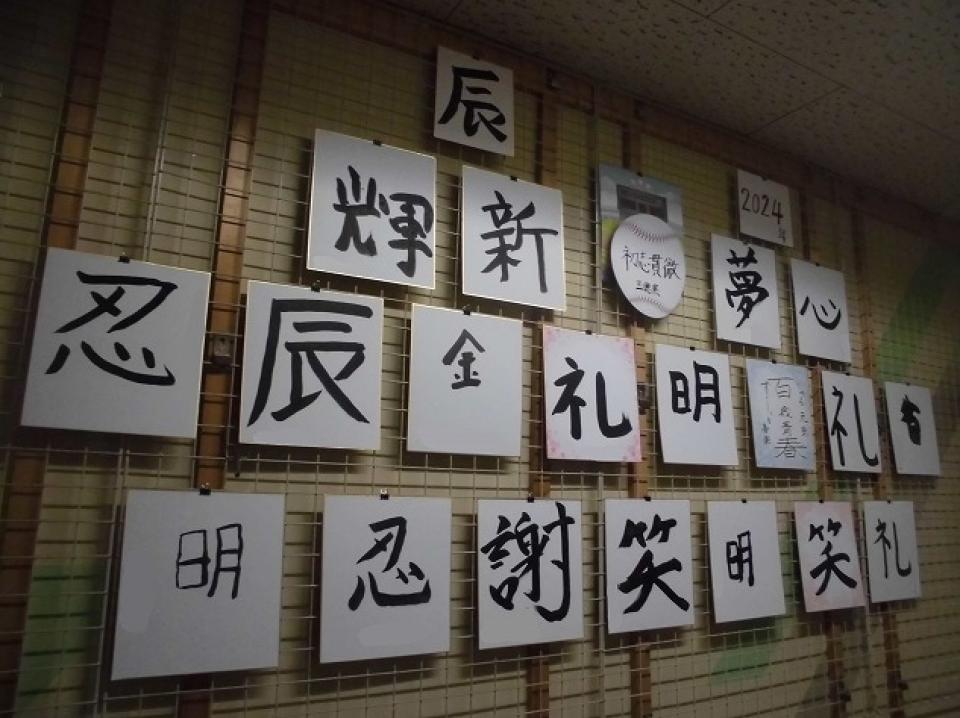 辰
輝
新
初志貫徹
2024年
夢
心
忍
辰
金
礼
明
百
青春
礼
明
忍
謝
笑
明
笑
礼